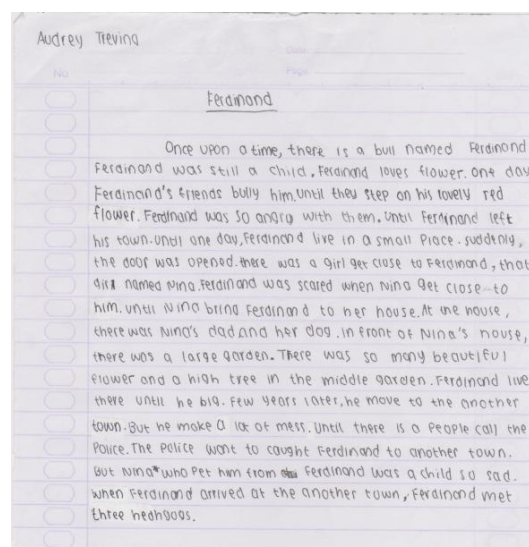 Audrey Trevina
Date
No.
Page
Ferdinand
Once upon a time, there is a bull named Ferdinand
Ferdinand was still a child. Ferdinand loves flower. One day
Ferdinand's friends bully him. Until they step on his lovely red
flower. Ferdinand was so angry with them. Until Ferdinand left
his town. Until one day, Ferdinand live in a small Place. suddenly,
the door was opened. there was a girl get close to Ferdinand, that
girl named Nina. Ferdinand was scared when Nina get close to
him. until Nina bring Ferdinand to her house. At the house,
there was Nina's dad and her dog. in front of Nina's house,
there was a large garden. There was so many beautiful
flower and a high tree in the middle garden. Ferdinand live
there until he big. Few years later, he move to the another
town. But he make a lot of mess. Until there is a People call the
Police. The Police want to caught Ferdinand to another town.
But Nina who Pet him from Ferdinand was a child so sad.
when Ferdinand arrived at the another town, Ferdinand met
three hedhgogs.